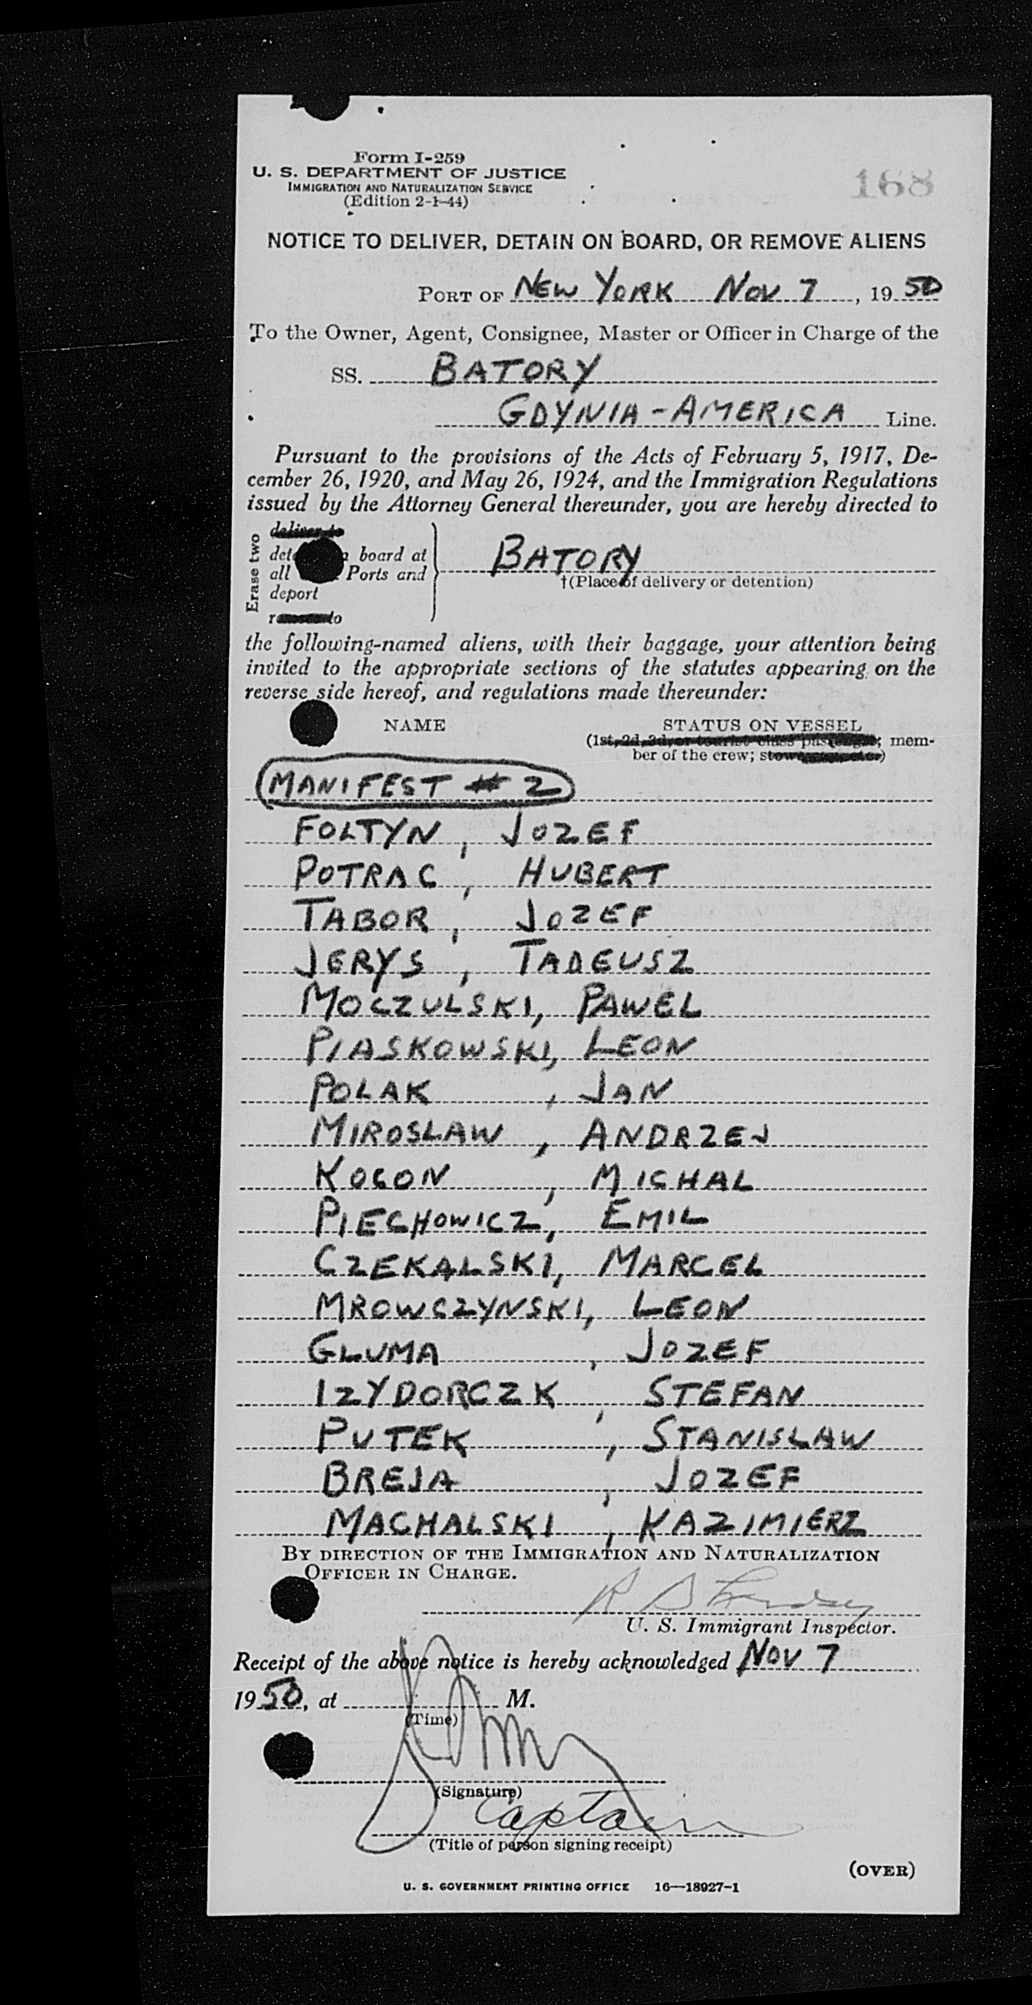 Form I-259
U. S. DEPARTMENT OF JUSTICE
IMMIGRATION AND NATURALIZATION SERVICE
(Edition 2-1-44)
168
NOTICE TO DELIVER, DETAIN ON BOARD, OR REMOVE ALIENS
PORT OF NEW YORK NOV 7, 1950
To the Owner, Agent, Consignee, Master or Officer in Charge of the
SS. BATORY
GDYNIA-AMERICA Line.
Pursuant to the provisions of the Acts of February 5, 1917, De-
cember 26, 1920, and May 26, 1924, and the Immigration Regulations
issued by the Attorney General thereunder, you are hereby directed to
Erase two
deliver to
board at
all Ports and
deport
BATORY
†(Place of delivery or detention)
the following-named aliens, with their baggage, your attention being
invited to the appropriate sections of the statutes appearing on the
reverse side hereof, and regulations made thereunder:
NAME STATUS ON VESSEL
(1st, 2d, 3d, or tourist class passenger; mem-
ber of the crew;
MANIFEST # 2
FOLTYN, JOZEF
POTRAC, HUBERT
TABOR, JOZEF
JERYS, TADEUSZ
MOCZULSKI, PAWEL
PIASKOWSKI, LEON
POLAK, JAN
MIROSLAW, ANDRZEJ
KOCON, MICHAL
PIECHOWICZ, EMIL
CZEKALSKI, MARCEL
MROWCZYNSKI, LEON
GLUMA, JOZEF
IZYDORCZK, STEFAN
PUTEK, STANISLAW
BREJA, JOZEF
MACHALSKI, KAZIMIERZ
BY DIRECTION OF THE IMMIGRATION AND NATURALIZATION
OFFICER IN CHARGE.
U. S. Immigrant Inspector.
Receipt of the above notice is hereby acknowledged NOV 7
1950, at M.
(Time)
(Signature)
Captain
(Title of person signing receipt)
(OVER)
U. S. GOVERNMENT PRINTING OFFICE 16—18927-1